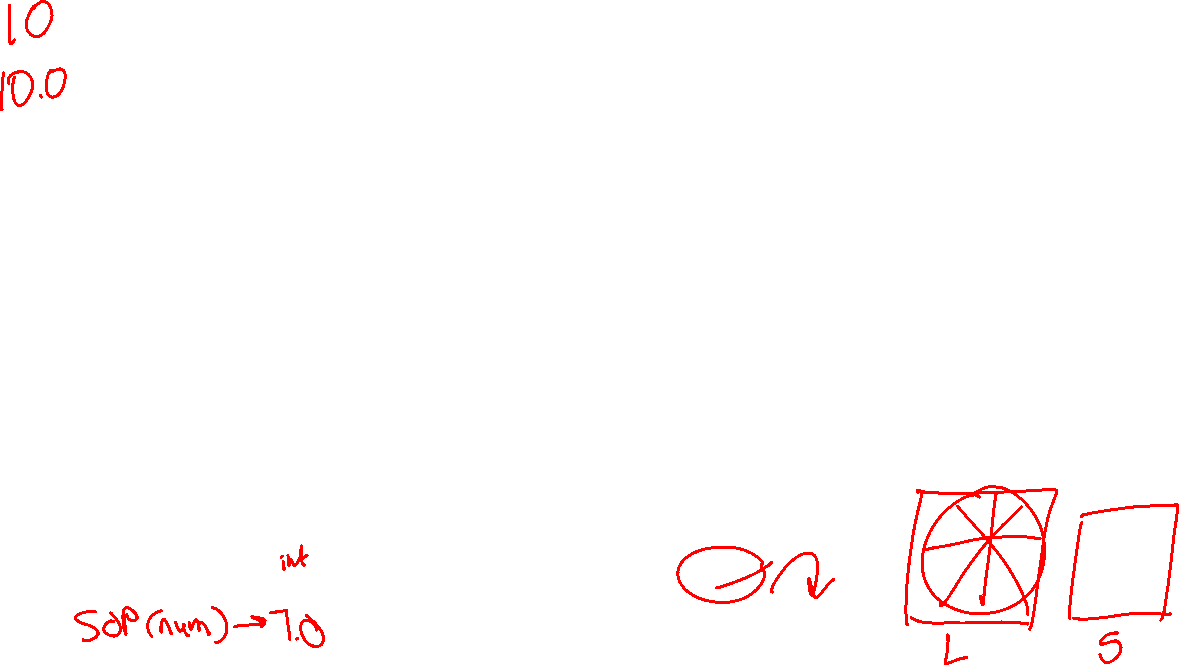 10
10.0
int
SOP(num)→7.0
L
S